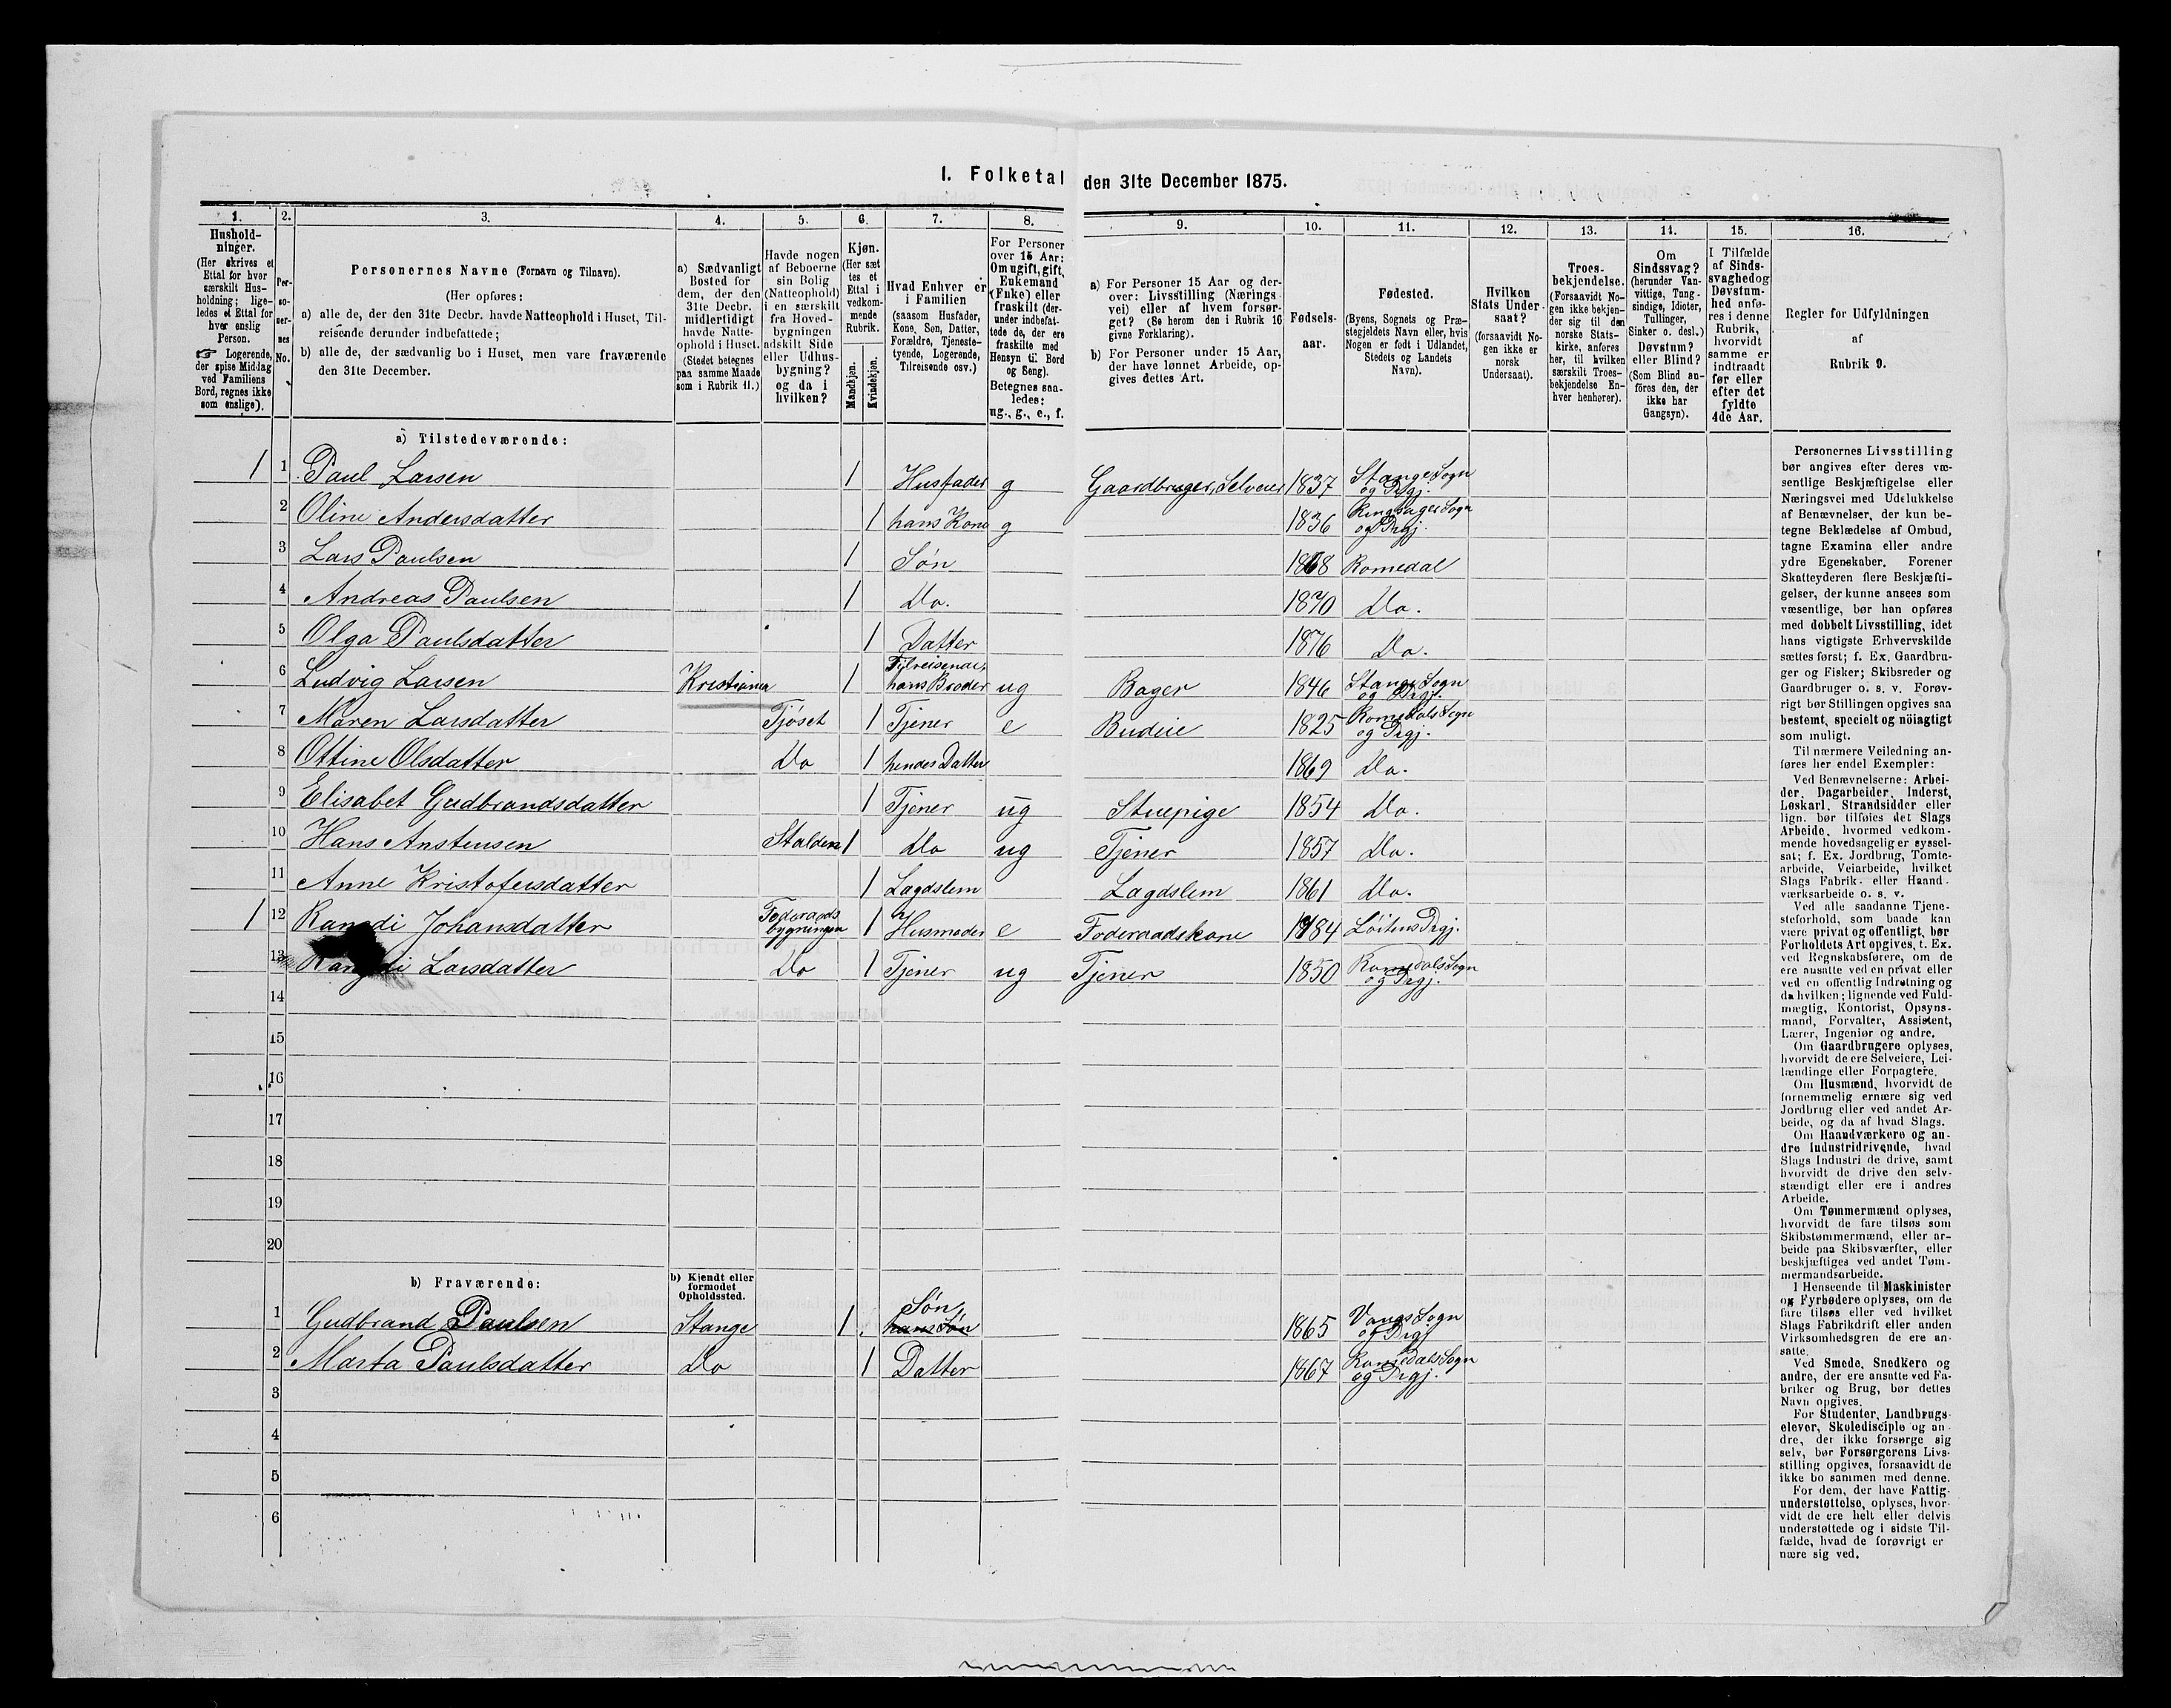 I. Folketal den 31te December 1875.
1. 2. 3. 4. 5. 6. 7. 8. 9. 10. 11. 12. 13. 14. 15. 16.
Hushold-
ninger.
(Her skrives et
Ettal for hver
særskilt Hus-
holdning; lige-
ledes et Ettal for
hver enslig
Person.
☞ Logerende,
der spise Middag
ved Familiens
Bord, regnes ikke
som enslige).
Per-
so-
ner-
nes
No.
Personernes Navne (Fornavn og Tilnavn).
(Her opføres:
a) alle de, der den 31te Decbr. havde Natteophold i Huset, Til-
reisende derunder indbefattede;
b) alle de, der sædvanlig bo i Huset, men vare fraværende
den 31te December.
a) Sædvanligt
Bosted for
dem, der den
31te Decbr.
midlertidigt
havde Natte-
ophold i Huset.
(Stedet betegnes
paa samme Maade
som i Rubrik 11.)
Havde nogen
af Beboerne
sin Bolig
(Natteophold)
i en særskilt
fra Hoved-
bygningen
adskilt Side
eller Udhus-
bygning?
og da i
hvilken?
Kjøn.
(Her sæt
tes et
Ettal i
vedkom-
mende
Rubrik.
Mandkjøn.
Kvindekjøn.
Hvad Enhver er
i Familien
(saasom Husfader,
Kone, Søn, Datter,
Forældre, Tjeneste-
tyende, Logerende,
Tilreisende osv.)
For Personer
over 15 Aar:
Om ugift, gift,
Enkemand
(Enke) eller
fraskilt (der-
under indbefat-
tede de, der ere
fraskilte med
Hensyn til Bord
og Seng).
Betegnes saa-
ledes:
ug., g., e., f.
a) For Personer 15 Aar og der-
over: Livsstilling (Nærings-
vei) eller af hvem forsør-
get? (Se herom den i Rubrik 16
givne Forklaring).
b) For Personer under 15 Aar,
der have lønnet Arbeide, op-
gives dettes Art.
Fødsels-
aar.
Fødested.
(Byens, Sognets og Præ-
stegjeldets Navn eller, hvis
Nogen er født i Udlandet,
Stedets og Landets
Navn).
Hvilken
Stats Under-
saat?
(forsaavidt No-
gen ikke er
norsk
Undersaat).
Troes-
bekjendelse.
(Forsaavidt No-
gen ikke bekjen-
der sig til den
norske Stats-
kirke, anføres
her, til hvilken
særskilt Troes-
bekjendelse En-
hver henhører).
Om
Sindssvag?
(herunder Van-
vittige, Tung-
sindige, Idioter,
Tullinger,
Sinker o. desl.)
Døvstum?
eller Blind?
(Som Blind an-
föres den, der
ikke har
Gangsyn).
I Tilfælde
af Sinds-
svaghed og
Døvstum-
hed anfø-
res i denne
Rubrik,
hvorvidt
samme er
indtraadt
før eller
efter det
fyldte
4de Aar.
Regler for Udfyldningen
af
Rubrik 9.
a) Tilstedeværende:
1 1 Paul Larsen 1 Husfader g Gaardbruger, Selveier 1837 Stange Sogn og Prgj.
2 Oline Andersdatter 1 hans Kone g 1836 Ringsager Sogn og Prgj.
3 Lars Paulsen 1 Søn 1868 Romedal
4 Andreas Paulsen 1 Do. 1870 Do.
5 Olga Paulsdatter 1 Datter 1876 Do.
6 Ludvig Larsen Kristiania 1 Tilreisende, hans Broder ug Bager 1846 Stange Sogn og Prgj.
7 Maren Larsdatter Fjöset 1 Tjener e Budeie 1825 Romedals Sogn og Prgj.
8 Ottine Olsdatter Do 1 hendes Datter 1869 Do.
9 Elisabet Gudbrandsdatter 1 Tjener ug Stuepige 1854 Do.
10 Hans Anstensen Stalden 1 Do ug Tjener 1857 Do.
11 Anne Kristofersdatter 1 Lagdslem Lagdslem 1861 Do.
1 12 Rangdi Johansdatter Foderaads bygningen 1 Husmoder e Foderaadskone 1784 Löitens Prgj.
13 Rangdi Larsdatter Do 1 Tjener ug Tjener 1850 Romedals Sogn og Prgj.
14
15
16
17
18
19
20
b) Fraværende:
b) Kjendt eller
formodet
Opholdssted.
1 Gudbrand Paulsen Stange 1 Søn, hans Søn 1865 Vangs Sogn og Prgj
2 Marta Paulsdatter Do 1 Datter 1867 Romedals Sogn og Prgj.
3
4
5
6
Personernes Livsstilling
bør angives efter deres væ-
sentlige Beskjæftigelse eller
Næringsvei med Udelukkelse
af Benævnelser, der kun be-
tegne Beklædelse af Ombud,
tagne Examina eller andre
ydre Egenskaber. Forener
Skatteyderen flere Beskjæfti-
gelser, der kunne ansees som
væsentlige, bør han opføres
med dobbelt Livsstilling, idet
hans vigtigste Erhvervskilde
sættes først; f. Ex. Gaardbru-
ger og Fisker; Skibsreder og
Gaardbruger o. s. v. Forøv-
rigt bør Stillingen opgives saa
bestemt, specielt og nöiagtigt
som muligt.
Til nærmere Veiledning an-
føres her endel Exempler:
Ved Benævnelserne: Arbei-
der, Dagarbeider, Inderst,
Løskarl, Strandsidder eller
lign. bør tilføies det Slags
Arbeide, hvormed vedkom-
mende hovedsagelig er syssel-
sat; f. Ex. Jordbrug, Tomte-
arbeide, Veiarbeide, hvilket
Slags Fabrik- eller Haand-
værksarbeide o. s. v.
Ved alle saadanne Tjene-
steforhold, som baade kan
være privat og offentligt, bør
Forholdets Art opgives, t. Ex.
ved Regnskabsførere, om de
ere ansatte ved en privat eller
ved en offentlig Indretning og
da hvilken; lignende ved Fuld-
mægtig, Kontorist, Opsyns-
mand, Forvalter, Assistent,
Lærer, Ingeniør og andre.
Om Gaardbrugere oplyses,
hvorvidt de ere Selveiere, Lei-
lændinge eller Forpagtere.
Om Husmænd, hvorvidt de
fornemmelig ernære sig ved
Jordbrug eller ved andet Ar-
beide, og da af hvad Slags.
Om Haandværkere og an-
dre Industridrivende, hvad
Slags Industri de drive, samt
hvorvidt de drive den selv-
stændigt eller ere i andres
Arbeide.
Om Tømmermænd oplyses,
hvorvidt de fare tilsøs som
Skibstømmermænd, eller ar-
beide paa Skibsværfter, eller
beskjæftiges ved andet Tøm-
mermandsarbeide.
I Henseende til Maskinister
og Fyrbødere oplyses, om de
fare tilsøs eller ved hvilket
Slags Fabrikdrift eller anden
Virksomhedsgren de ere an-
satte.
Ved Smede, Snedkere og
andre, der ere ansatte ved Fa-
briker og Brug, bør dettes
Navn opgives.
For Studenter, Landbrugs-
elever, Skoledisciple og an-
dre, der ikke forsørge sig
selv, bør Forsørgerens Livs-
stilling opgives, forsaavidt de
ikke bo sammen med denne.
For dem, der have Fattig-
understøttelse, oplyses, hvor-
vidt de ere helt eller delvis
understøttede og i sidste Til-
fælde, hvad de forøvrigt er
nære sig ved.